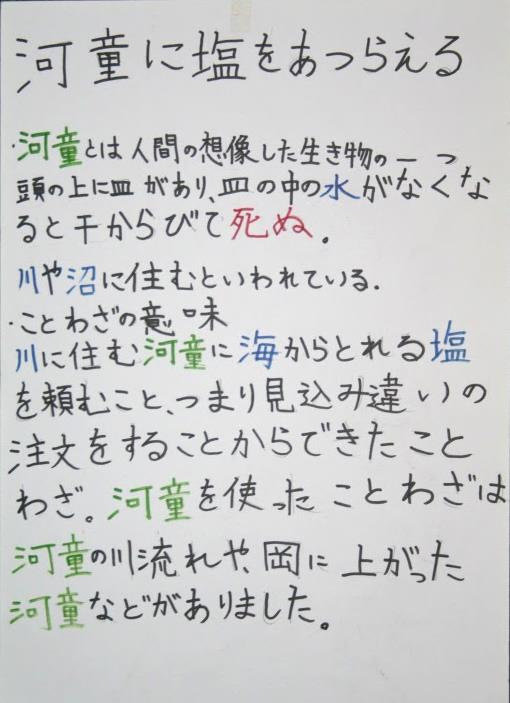 河童に塩をあつらえる
・河童とは人間の想像した生き物の一つ
頭の上に皿があり、皿の中の水がなくな
ると干からびて死ぬ。
川や沼に住むといわれている.
・ことわざの意味
川に住む河童に海からとれる塩
を頼むこと、つまり見込み違いの
注文をすることからできたこと
わざ。河童を使ったことわざは
河童の川流れや、岡に上がった
河童などがありました。